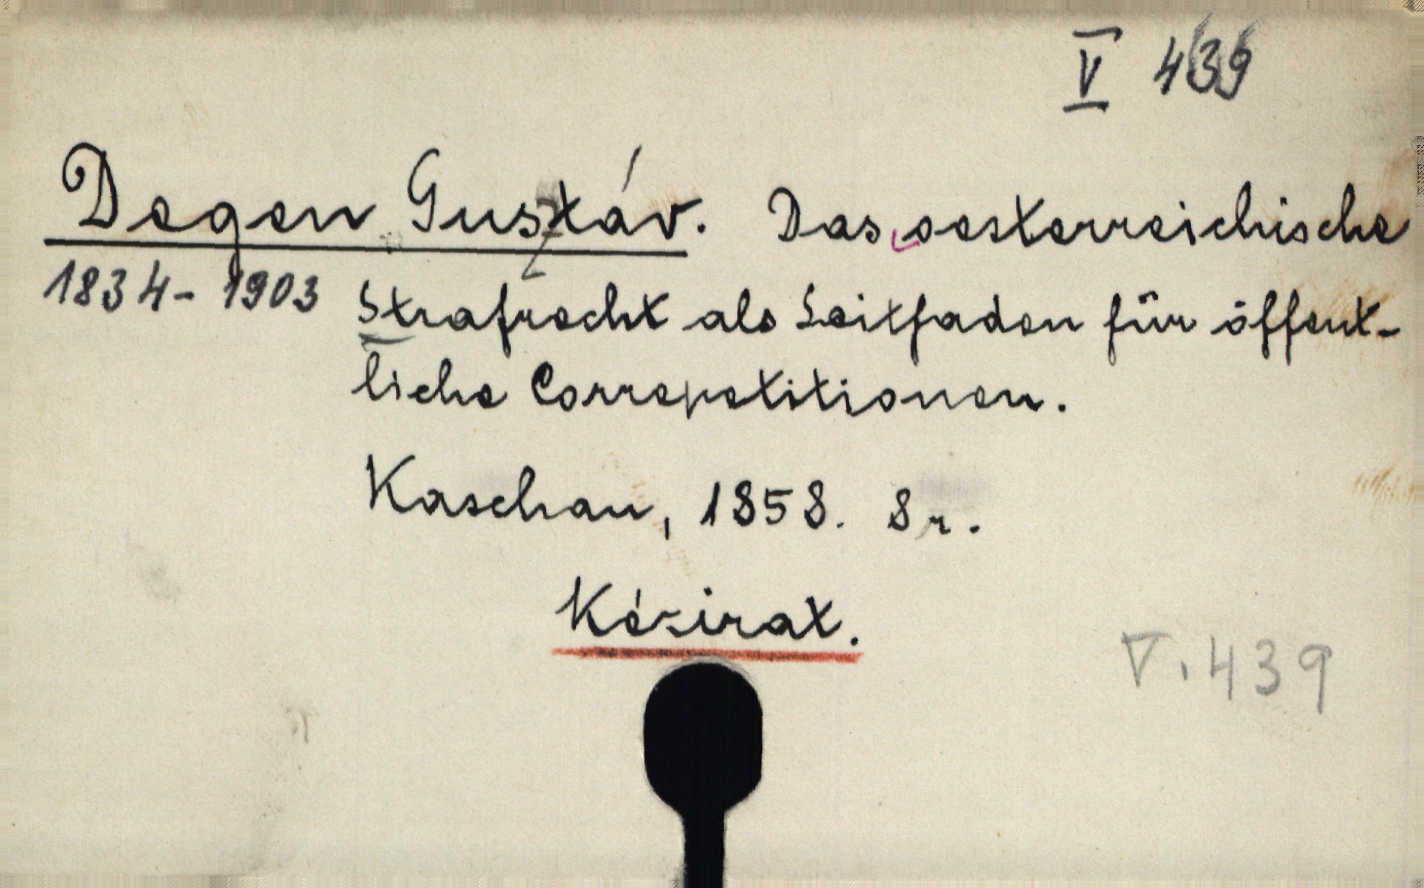 V 439
Degen Gusztáv. Das oesterreichische
1834-1903 Strafrecht als Leitfaden für öffent-
liche Correpetitionen.
Kaschau, 1858. 8r.
Kézirat.
V. 439